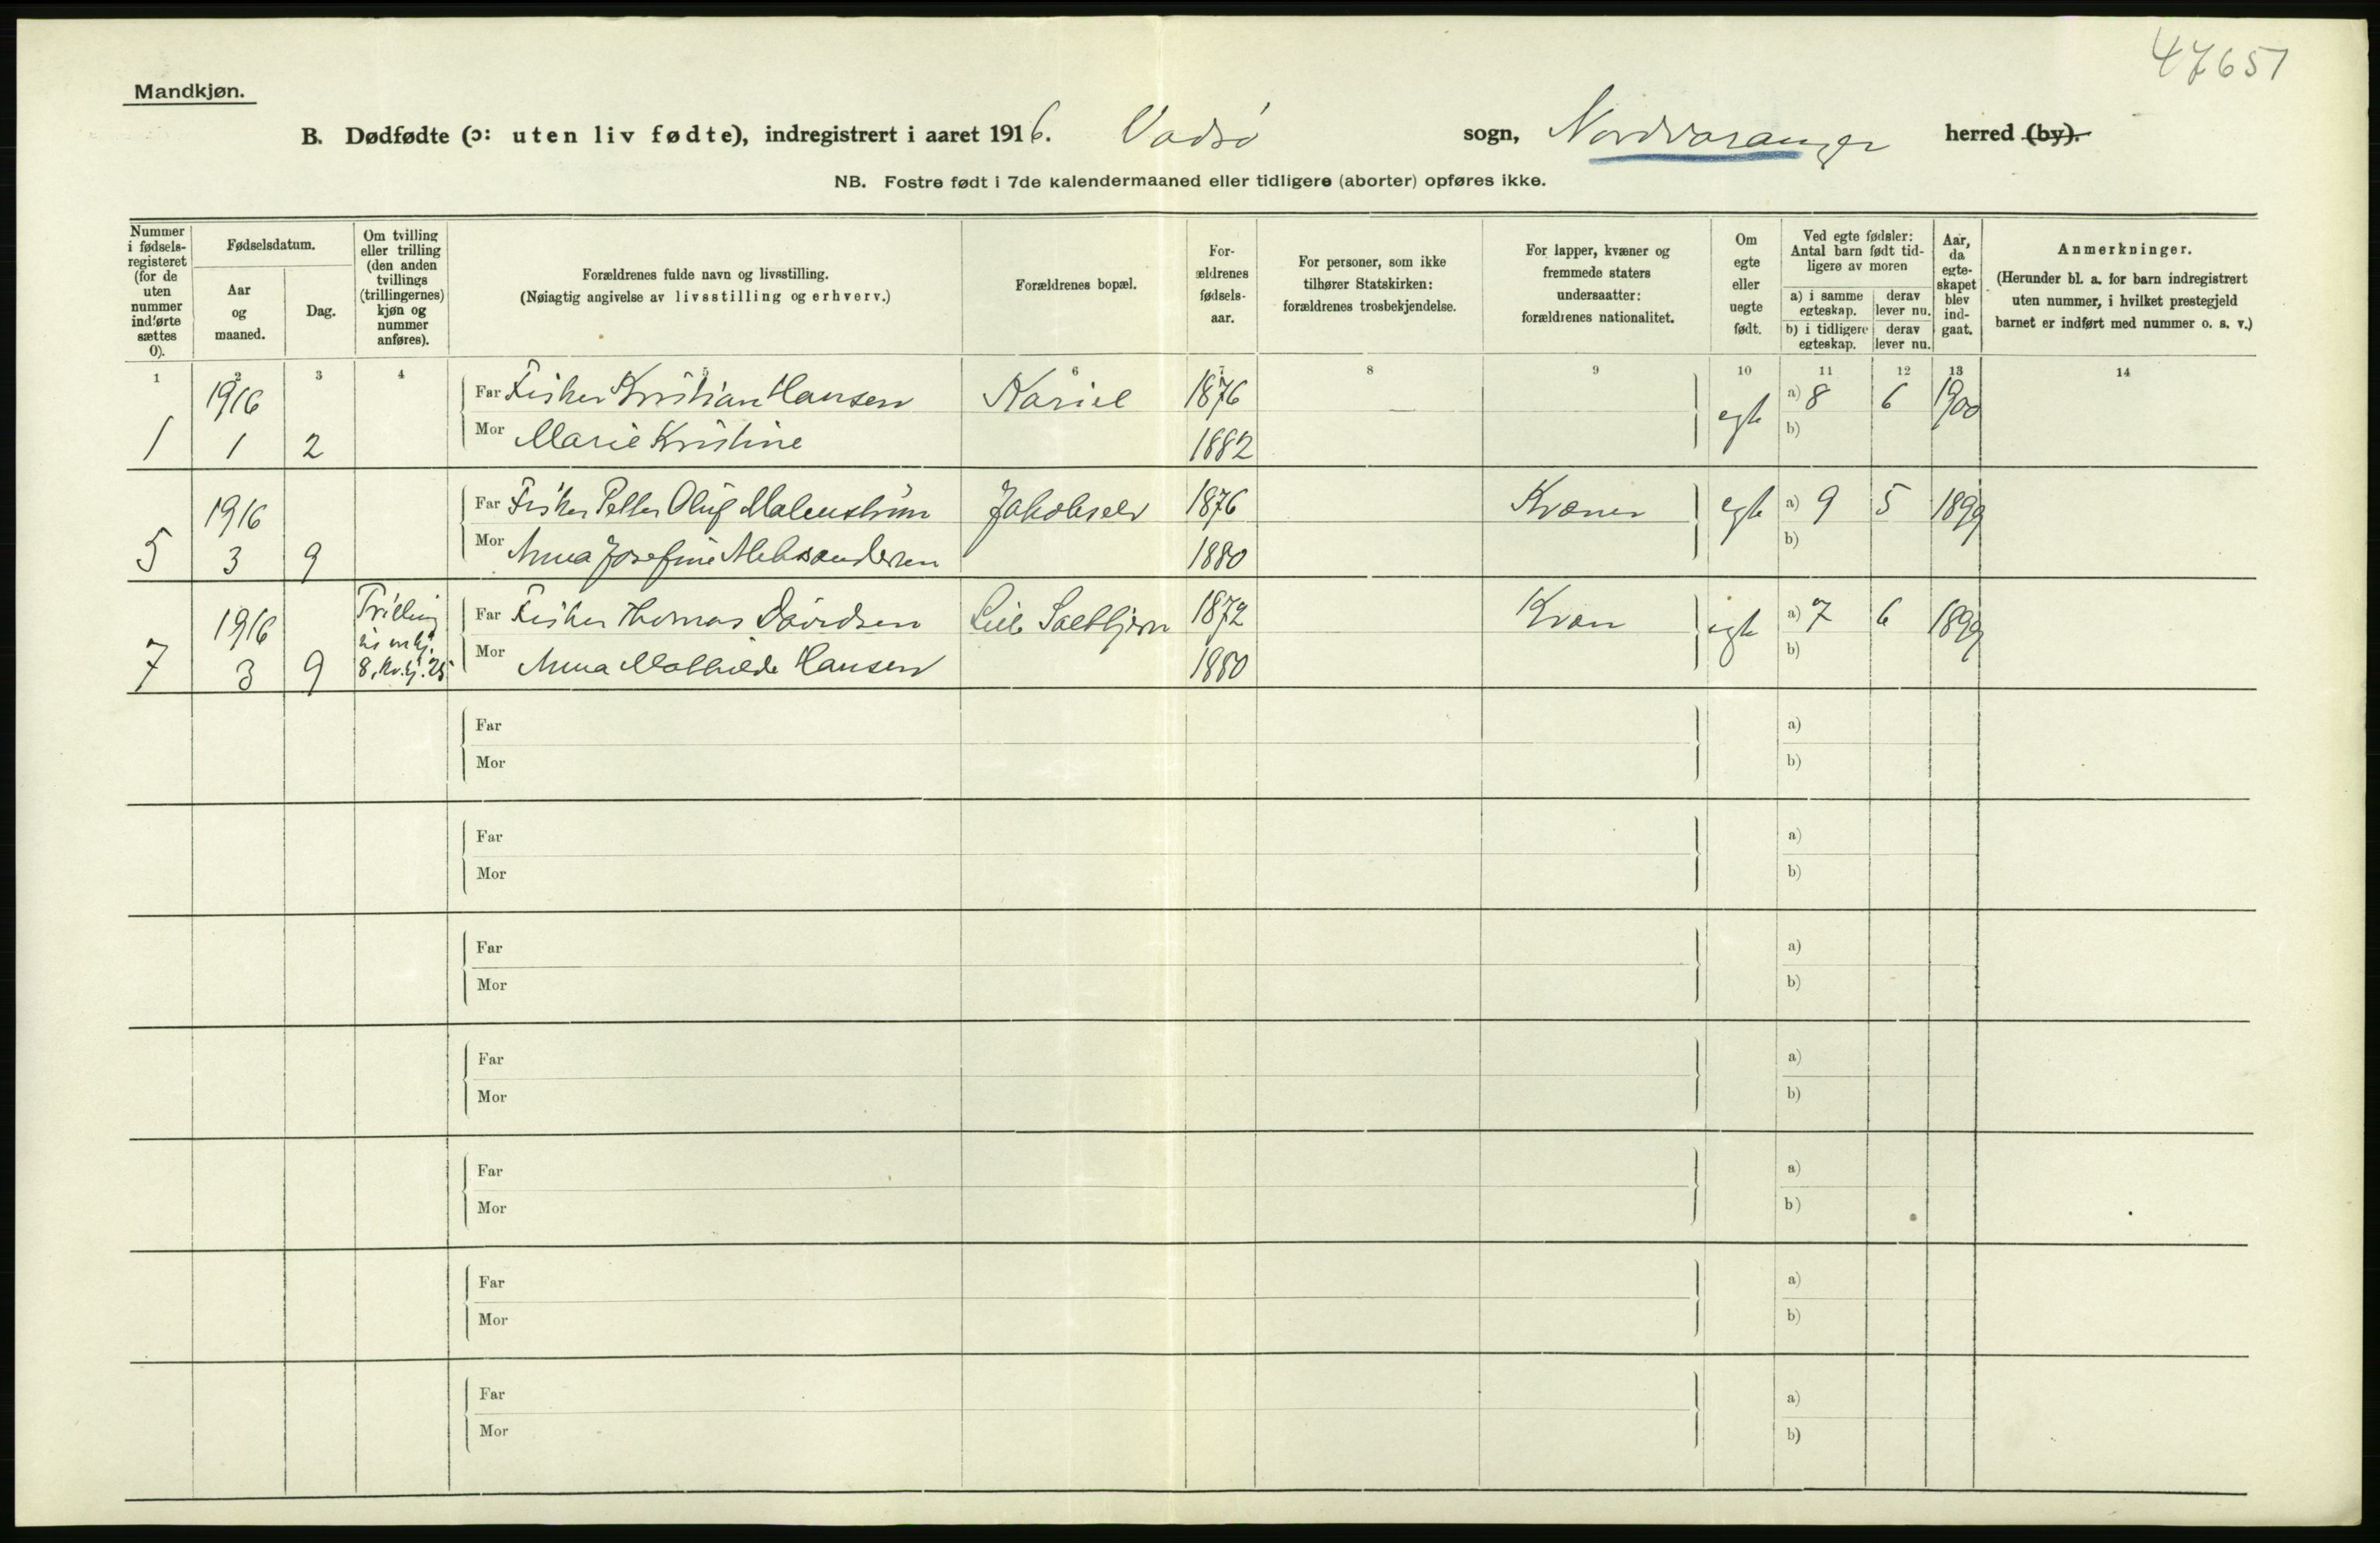 47651
Mandkjøn.
B. Dødfødte (ɔ: uten liv fødte), indregistrert i aaret 1916. Vadsø sogn, Nordvaranger herred (by).
NB. Fostre født i 7de kalendermaaned eller tidligere (aborter) opføres ikke.
Nummer i fødsels-registeret (for de uten nummer indførte sættes 0).
Fødselsdatum.
Aar og maaned.
Dag.
Om tvilling eller trilling (den anden tvillings (trillingernes) kjøn og nummer anføres).
Forældrenes fulde navn og livsstilling.
(Nøiagtig angivelse av livsstilling og erhverv.)
Forældrenes bopæl.
For-ældrenes fødsels-aar.
For personer, som ikke tilhører Statskirken: forældrenes trosbekjendelse.
For lapper, kvæner og fremmede staters undersaatter: forældrenes nationalitet.
Om egte eller uegte født.
Ved egte fødsler: Antal barn født tid-ligere av moren
a) i samme egteskap. derav lever nu.
b) i tidligere egteskap. derav lever nu.
Aar, da egte-skapet blev ind-gaat.
Anmerkninger.
(Herunder bl. a. for barn indregistrert uten nummer, i hvilket prestegjeld barnet er indført med nummer o. s. v.)
1 2 3 4 5 6 7 8 9 10 11 12 13 14
1916 Far Fisker Kristian Hansen Kariel 1876 — egte a) 8 6 1900
1 1 2 Mor Marie Kristine 1882 b)
1916 Far Fisker Petter Oluf Malenström Jakobselv 1876 Kvæner egte a) 9 5 1899
5 3 9 Mor Anna Josefine Aleksandersen 1880 b)
1916 Trilling Far Fisker Thomas Davidsen Lille Saltbjern 1872 Kvæn egte a) 7 6 1899
7 3 9 8, kv.kj. 25 Mor Anna Mathilde Hansen 1880 b)
Far a)
Mor b)
Far a)
Mor b)
Far a)
Mor b)
Far a)
Mor b)
Far a)
Mor b)
Far a)
Mor b)
Far a)
Mor b)